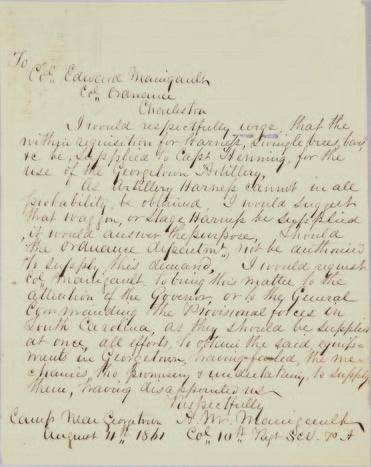 To
Col. Edward Manigault
Col. Ordnance
Charleston
I would respectfully urge, that the
within requisition for Harness, Swingletrees, bars
&c be, supplied to Capt Henning, for the
use of the Georgetown Artillery,
As Artillery Harness cannot in all
probability, be obtained, I would suggest
that waggon, or Stage Harness be supplied
, it would answer the purpose, Should
the Ordnance department, not be authorised
to supply this demand, I would request
Col. Manigault, to bring this matter to the
attention of the Governor, or to the General
Commanding the Provisional forces in
South Carolina, as they should be supplied
at once, all efforts, to obtain the said equip-
ments in Georgetown, having failed, the me-
chanics, tho promising & undertaking, to supply
them, having disappointed us
Respectfully
Camp Near Georgetown A. M. Manigault
August 4th 1861 Col 10th Regt S C V.